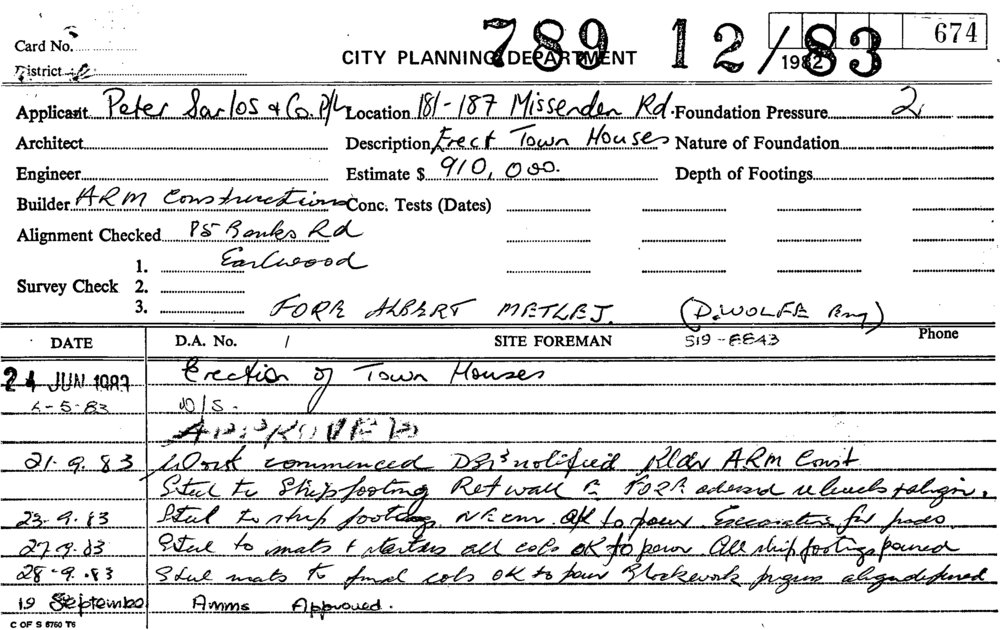 Card No.
CITY PLANNING DEPARTMENT
789 12/83
1982
674
District
Applicant Peter Sarlos & Co. P/L Location 181-187 Missenden Rd. Foundation Pressure 2
Architect Description Erect Town Houses Nature of Foundation
Engineer Estimate $ 910,000. Depth of Footings
Builder ARM Constructions Conc. Tests (Dates)
Alignment Checked 85 Banks Rd
1. Earlwood
Survey Check 2.
3. FORE ALBERT METLEJ. (D. WOLFE Eng)
DATE D.A. No. / SITE FOREMAN 519-8843 Phone
JUN Erection of Town Houses
-5-83 D/S.
APPROVED
21.9.83 Work commenced notified Bldr ARM Const
Steel to Strip footing Ret wall FORE levels & align.
23.9.83 Steel to strip footing OK to pour. Excavation for pads.
27.9.83 Steel to mats & starters all cols OK to pour All strip footings poured
28-9.83 Steel mats to final cols OK to pour Blockwork
19 September Amms Approved.
C OF S 8760 T6